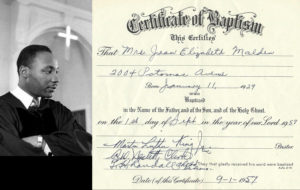 Certificate of Baptism
This Certifies
That Mrs Jean Elizabeth Malden
2004 Potomac Avenue
Born January 11, 1929
was
Baptized
in the Name of the Father, and of the Son, and of the Holy Ghost.
on the 1st day of Sept in the year of our Lord 1957
Martin Luther King, Jr. Pastor
They that gladly received his word were baptized
Date of this Certificate: 9-1-1957